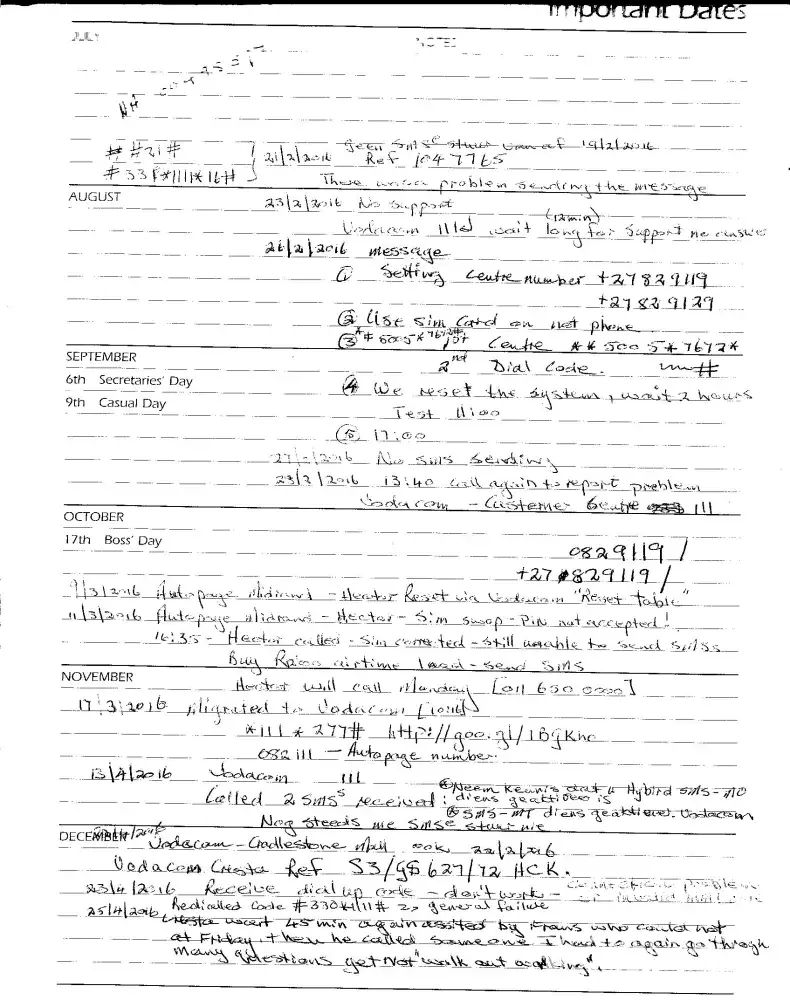 Important Dates
JULY NOTES
##21#
21/2/2016 Geen SMSe stuur vanaf 19/2/2016
Ref 1047765
#33#*1111*16#
There was a problem sending the message
AUGUST
23/2/2016 No support
(12min)
Vodacom 111 wait long for support no answer
26/2/2016 message
① Setting Centre number +27829119
+27829129
② Use sim card on not phone
③ **5005*7672# 1st Centre **5005*7672*
SEPTEMBER
2nd Dial Code. #
6th Secretaries' Day
④ We reset the system, wait 2 hours
9th Casual Day
Test 11:00
⑤ 17:00
2016 No SMS Sending
2016 13:40 call again to report problem
Vodacom - Customer Centre 111
OCTOBER
17th Boss' Day
0829119/
+27829119/
9/3/2016 Autopage Midrand - Hector Reset via Vodacom "Reset Table"
11/3/2016 Autopage Midrand - Hector - Sim swop - Pin not accepted!
16:35 - Hector called - Sim corrected - Still unable to send SMSs
Buy airtime load - send SMS
NOVEMBER
Hector will call Monday [011 650 0000]
17/3/2016 Migrated to Vodacom
*111*277# http://goo.gl/1BGKnc
082111 - Autopage number.
13/4/2016 Vodacom 111
Ⓐ Neem Kennis dat u Hybrid SMS-MO
Called 2 SMSs received: diens geaktiveer is
Ⓑ SMS-MT diens geaktiveer. Vodacom
Nog steeds nie SMSe stuur nie
DECEMBER
Vodacom - Cradlestone Mall ook 22/2/2016
Vodacom Cresta Ref S3/G8627/72 HCK.
23/4/2016 Receive dial up code - don't work - Connection problem
or invalid
25/4/2016 Redialled Code #330*111# 2, general failure
Cresta 45 min again assited by Frans who could not
at Friday, then he called someone I had to again go through
many questions get not "walk out